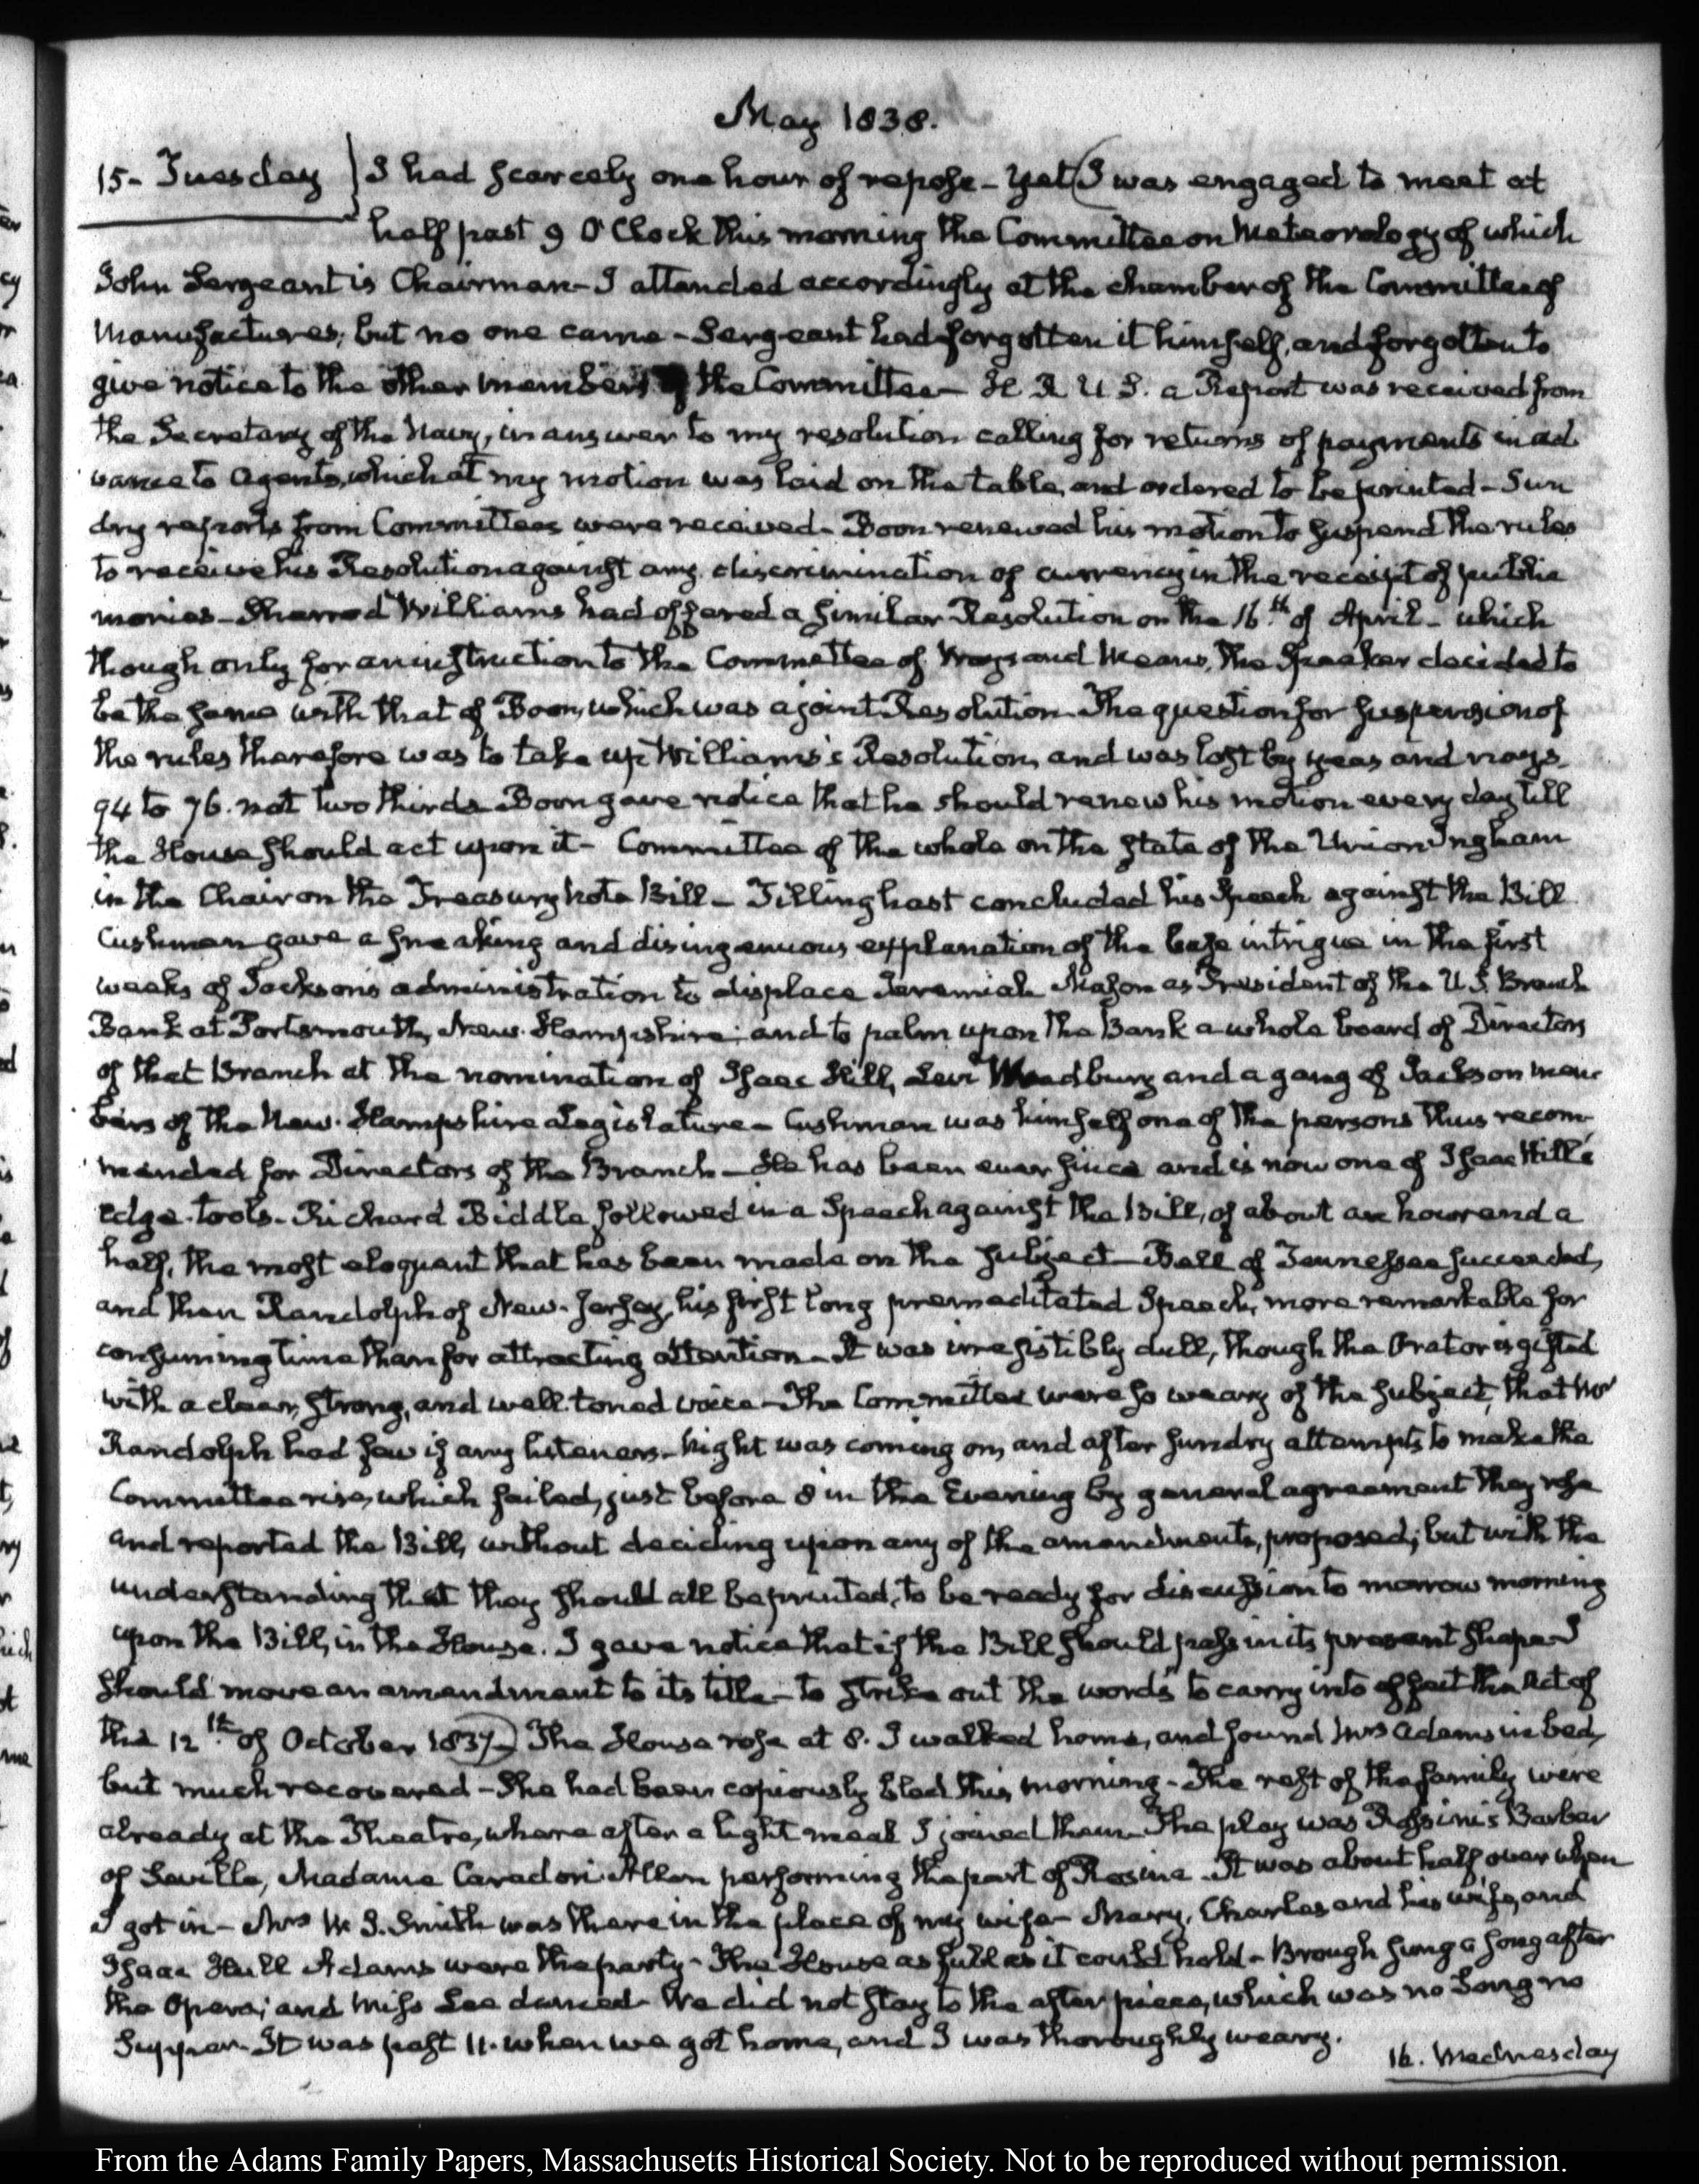 May 1838.
15. Tuesday } I had scarcely one hour of repose - Yet (I was engaged to meet at
half past 9 O'Clock this morning the Committee on Meteorology of which
John Sergeant is Chairman - I attended accordingly at the chamber of the Committee of
Manufactures; but no one came - Sergeant had forgotten it himself, and forgotten to
give notice to the other members of the Committee - H. R. U. S. a Report was received from
the Secretary of the Navy, in answer to my resolution calling for returns of payments in ad
vance to Agents, which at my motion was laid on the table, and ordered to be printed - Sun
dry reports from Committees were received - Boon renewed his motion to suspend the rules
to receive his Resolution against any discrimination of currency in the receipt of public
monies - Sherrod Williams had offered a similar Resolution on the 16.th of April - which
though only for an instruction to the Committee of Ways and Means, the Speaker decided to
be the same with that of Boon, which was a joint Resolution. The question for suspension of
the rules therefore was to take up Williams's Resolution, and was lost by yeas and nays
94 to 76. not two thirds. Boon gave notice that he should renew his motion every day till
the House should act upon it - Committee of the whole on the state of the Union Ingham
in the Chair on the Treasury note Bill - Tillinghast concluded his Speech against the Bill
Cushman gave a sneaking and disingenuous explanation of the base intrigue in the first
weeks of Jackson's administration to displace Jeremiah Mason as President of the U. S. Branch
Bank at Portsmouth, New-Hampshire; and to palm upon the Bank a whole board of Directors
of that Branch at the nomination of Isaac Hill, Levi Woodbury and a gang of Jackson mem
bers of the New-Hampshire Legislature - Cushman was himself one of the persons thus recom
mended for Directors of the Branch - He has been ever since and is now one of Isaac Hill's
edge-tools - Richard Biddle followed in a Speech against the Bill, of about an hour and a
half, the most eloquent that has been made on the subject - Bell of Tennessee succeeded,
and then Randolph of New-Jersey, his first long premeditated Speech, more remarkable for
consuming time than for attracting attention - It was irresistibly dull, though the Orator is gifted
with a clear, strong, and well toned voice - The Committee were so weary of the subject, that Mr
Randolph had few if any listeners - Night was coming on, and after sundry attempts to make the
Committee rise, which failed, just before 8 in the Evening by general agreement they rose
and reported the Bill, without deciding upon any of the amendments, proposed; but with the
understanding that they should all be printed, to be ready for discussion to morrow morning
upon the Bill, in the House. I gave notice that if the Bill should pass in its present shape I
should move an amendment to its title - to strike out the words to carry into effect the Act of
the 12.th of October 1837.) The House rose at 8. I walked home, and found Mrs Adams in bed,
but much recovered - She had been copiously bled this morning - The rest of the family were
already at the Theatre, where after a light meal I joined them - The play was Rossini's Barber
of Seville, Madame Caradori Allen performing the part of Rosina. It was about half over when
I got in - Mrs W. S. Smith was there in the place of my wife - Mary, Charles and his wife, and
Isaac Hull Adams were the party - The House as full as it could hold - Brough sung a song after
the Opera; and Miss Lee danced - We did not stay to the after piece, which was no Song no
Supper - It was past 11. when we got home, and I was thoroughly weary.
16. Wednesday
From the Adams Family Papers, Massachusetts Historical Society. Not to be reproduced without permission.